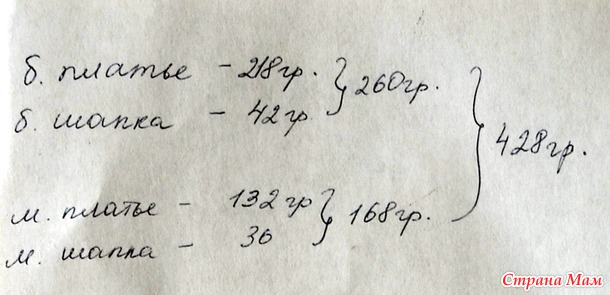 б. платье - 218гр. } 260гр.
б. шапка - 42гр
} 428гр.
м. платье - 132гр } 168гр.
м. шапка - 36
Страна Мам